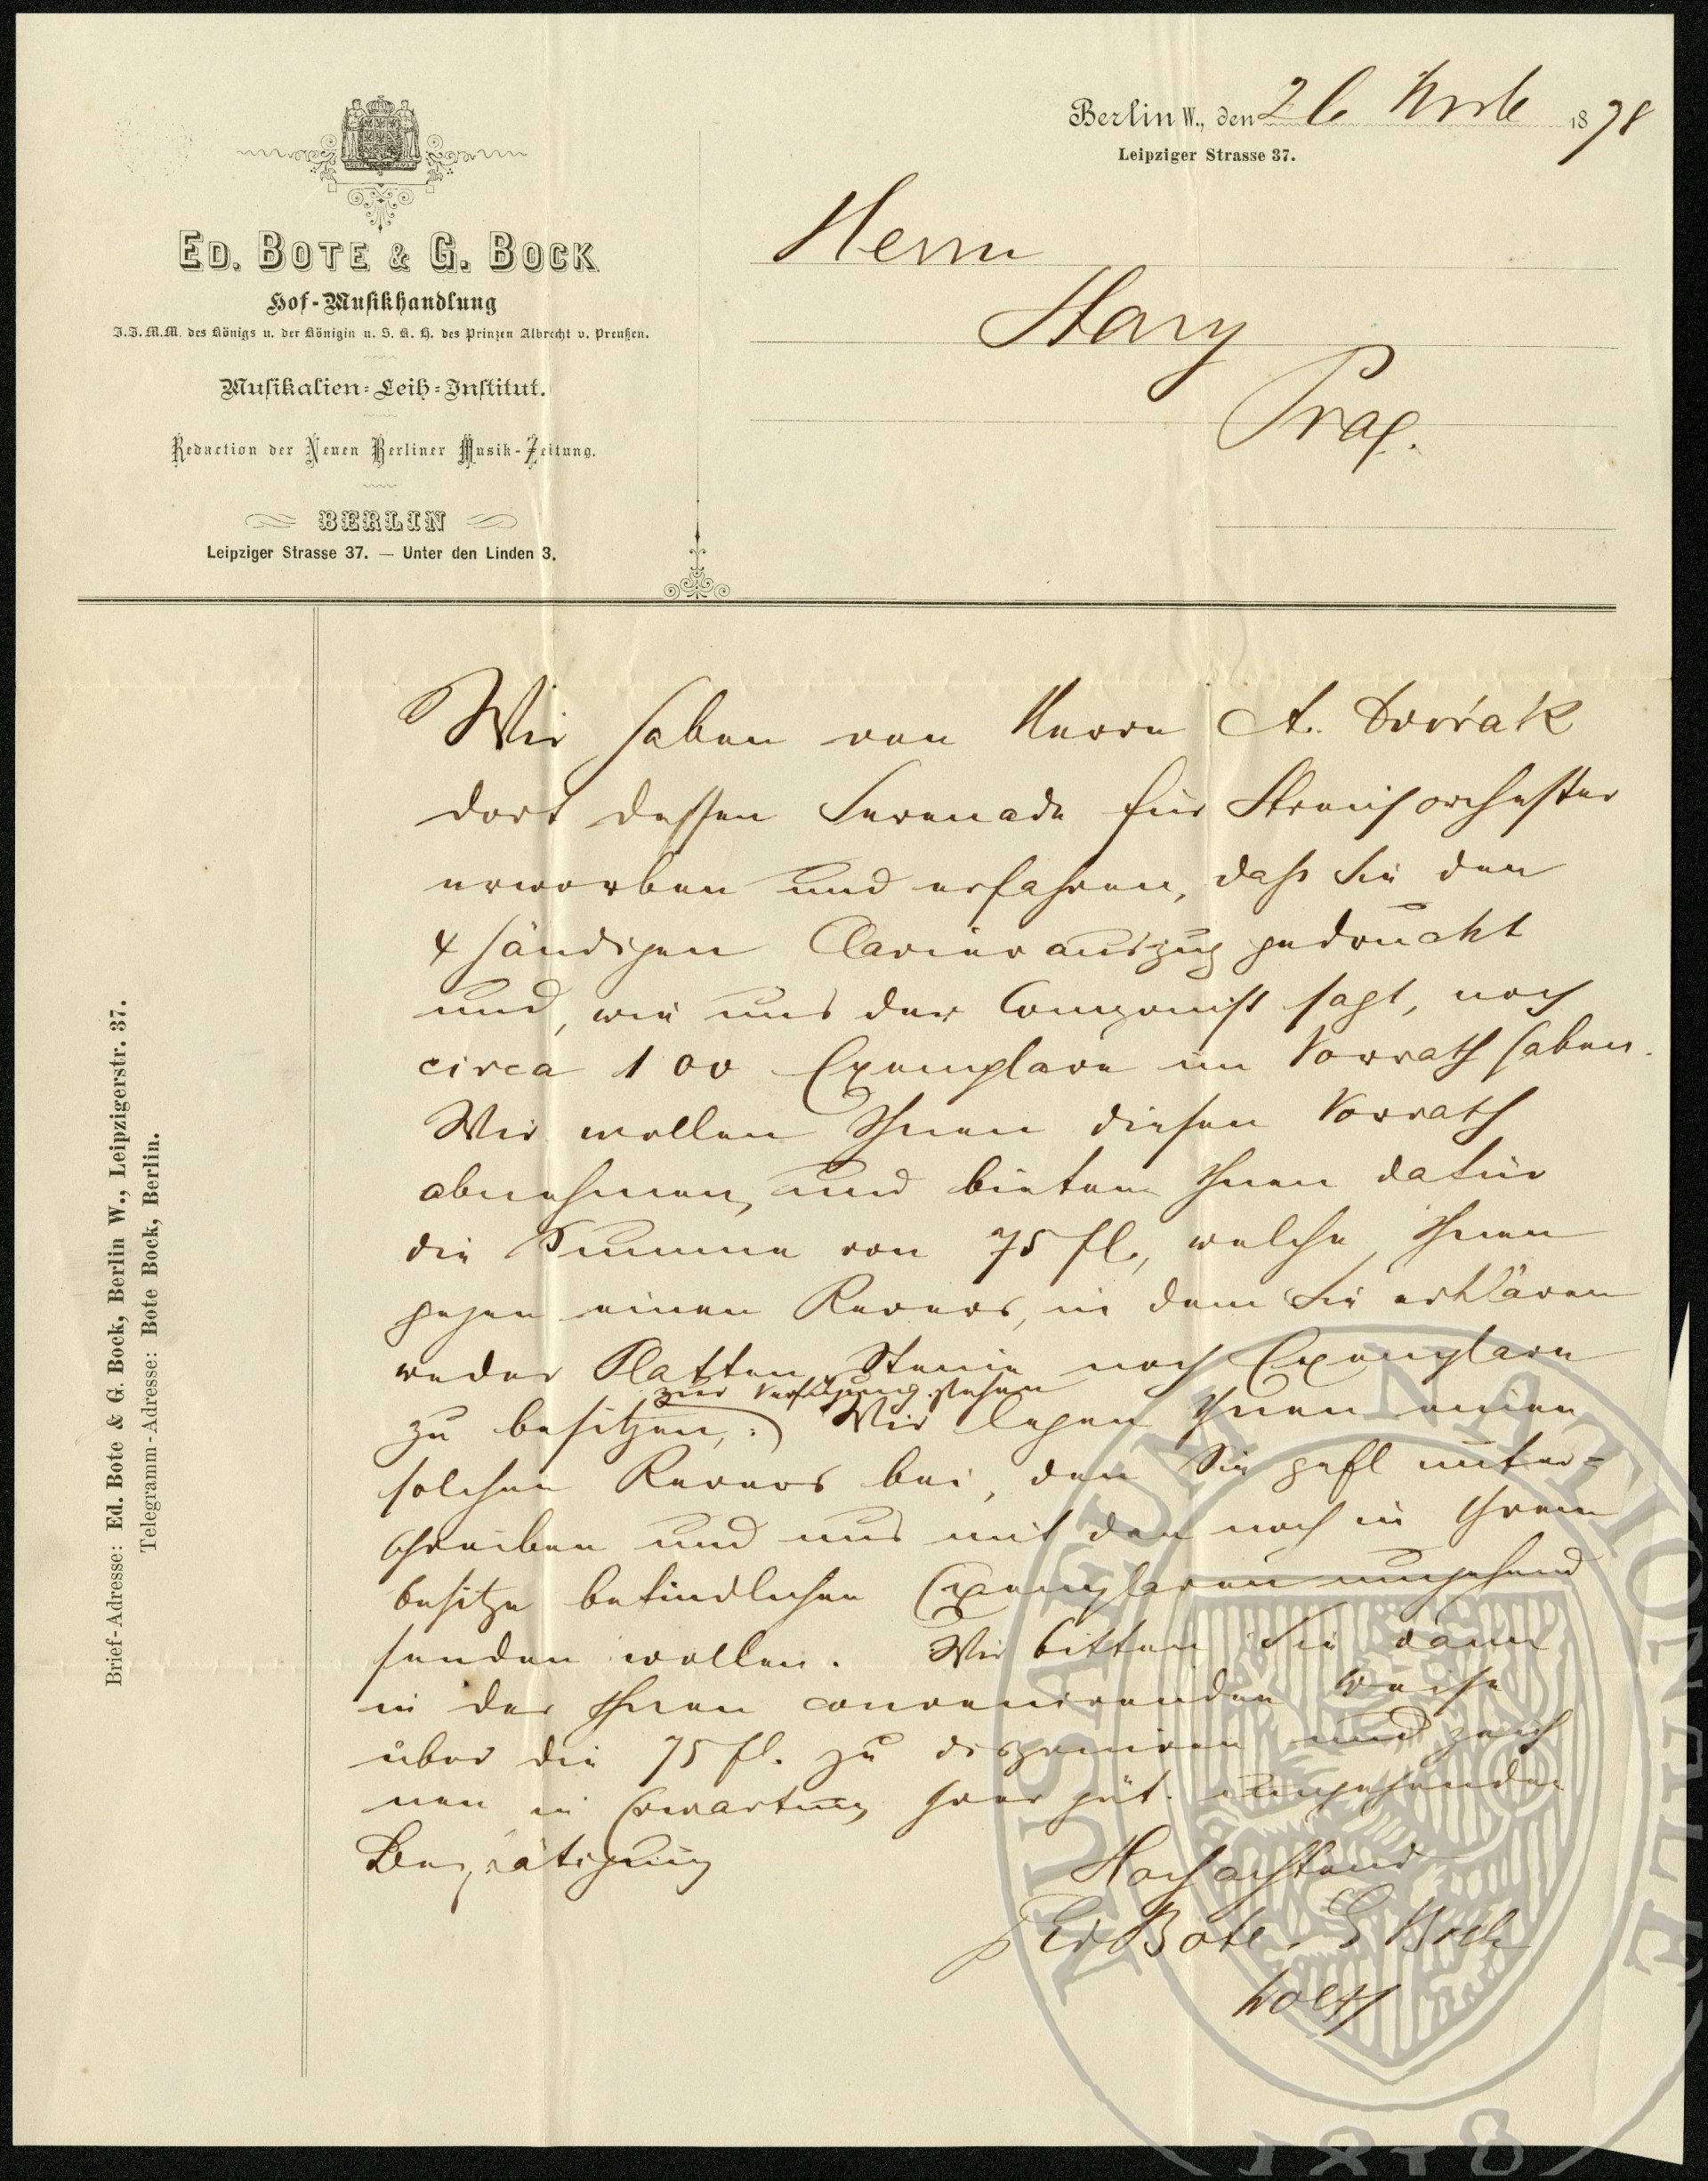 Berlin W., den 26 Novb 1878
Leipziger Strasse 37.
ED. BOTE & G. BOCK
Hof-Musikhandlung
J.J.M.M. des Königs u. der Königin u. S. K. H. des Prinzen Albrecht v. Preußen.
Musikalien-Leih-Institut.
Redaction der Neuen Berliner Musik-Zeitung.
BERLIN
Leipziger Strasse 37. — Unter den Linden 3.
Herrn
Stary
Prag.
Brief-Adresse: Ed. Bote & G. Bock, Berlin W., Leipzigerstr. 37.
Telegramm-Adresse: Bote Bock, Berlin.
Wir haben von Herrn A. Dvořak
dort dessen Serenade für Streichorchester
erworben und erfahren, daß Sie den
4 händigen Clavierauszug gedruckt
und, wie uns der Componist sagt, noch
circa 100 Exemplare im Vorrath haben.
Wir wollen Ihnen diesen Vorrath
abnehmen, und bieten Ihnen dafür
die Summe von 75 fl., welche Ihnen
gegen einen Revers, in dem Sie erklären
weder Platten, Steine noch Exemplare
zur Verfügung stehen
zu besitzen, Wir legen Ihnen einen
solchen Revers bei, den Sie gefl unter-
schreiben und uns mit den noch in Ihrem
besitze befindlichen Exemplaren umgehend
senden wollen. Wir bitten Sie dann
in der Ihnen convenirenden Weise
über die 75 fl. zu disponiren und zeich
nen in Erwartung Ihrer güt. umgehenden
Bestätigung
Hochachtend
Ed Bote & G Bock
Wolff
MUSAEUM NATIONALE
1818